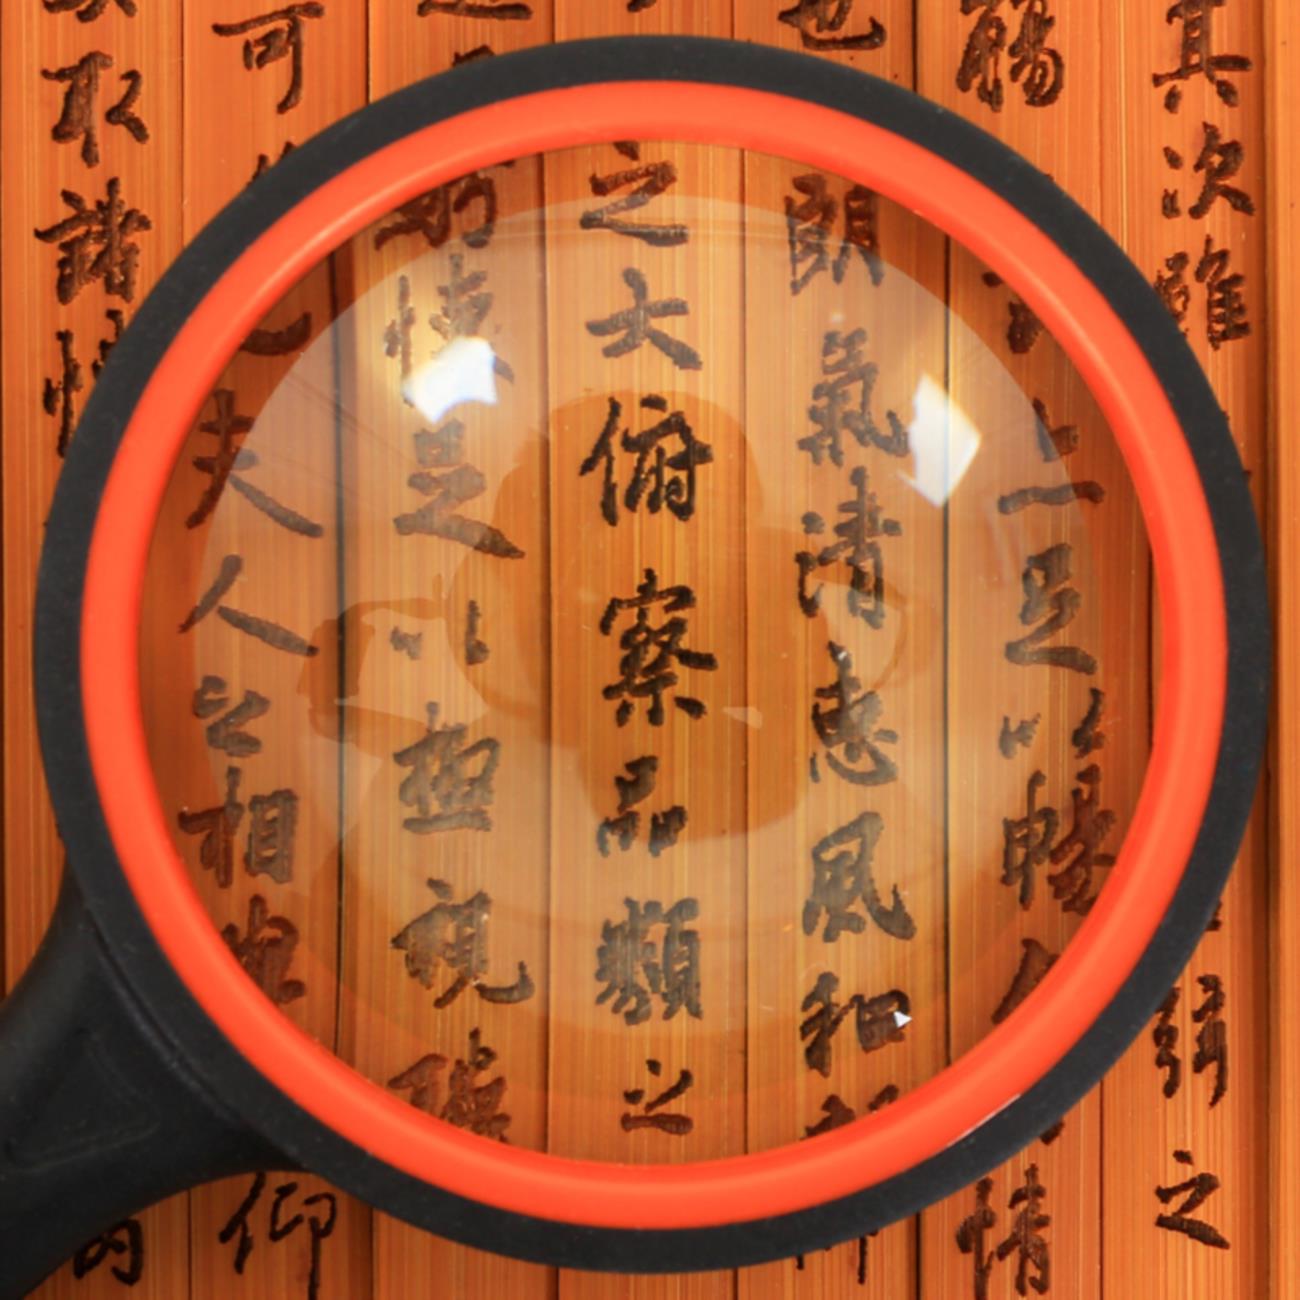 其次雖弦之
觴亦足以暢情
也朗氣清惠風和
之大俯察品類之
懷足以極視聽
可夫人之相與仰
取諸